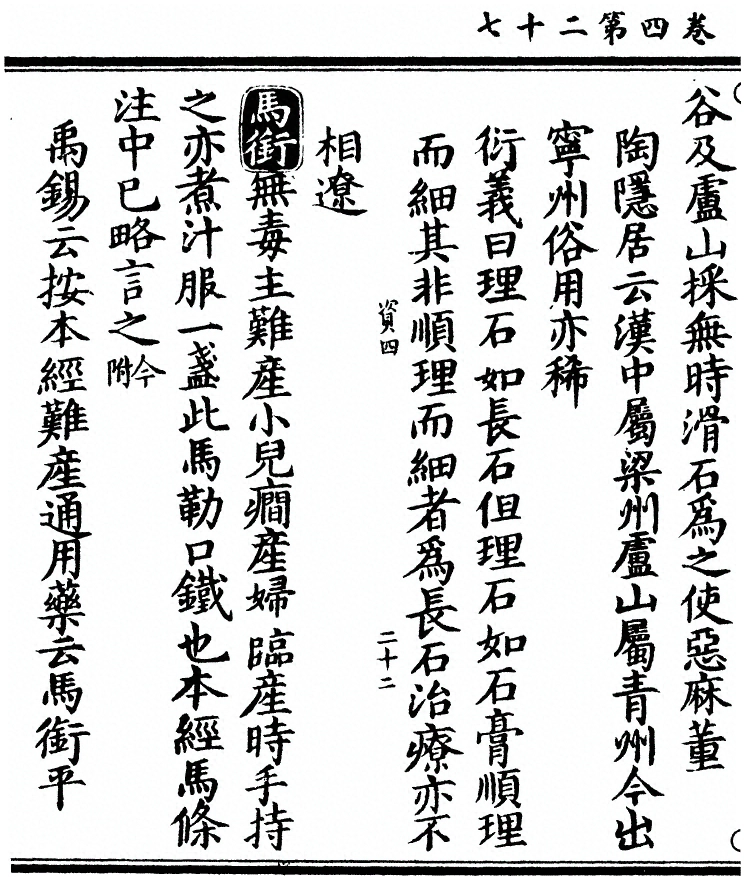 卷四第二十七
谷及盧山採無時滑石爲之使惡麻蕫
陶隱居云漢中屬梁州盧山屬青州今出
寧州俗用亦稀
衍義曰理石如長石但理石如石膏順理
而細其非順理而細者爲長石治療亦不
資四 二十二
相遼
馬銜無毒主難産小兒癇産婦臨産時手持
之亦煮汁服一盞此馬勒口鐵也本經馬條
注中已略言之今附
禹錫云按本經難産通用藥云馬銜平